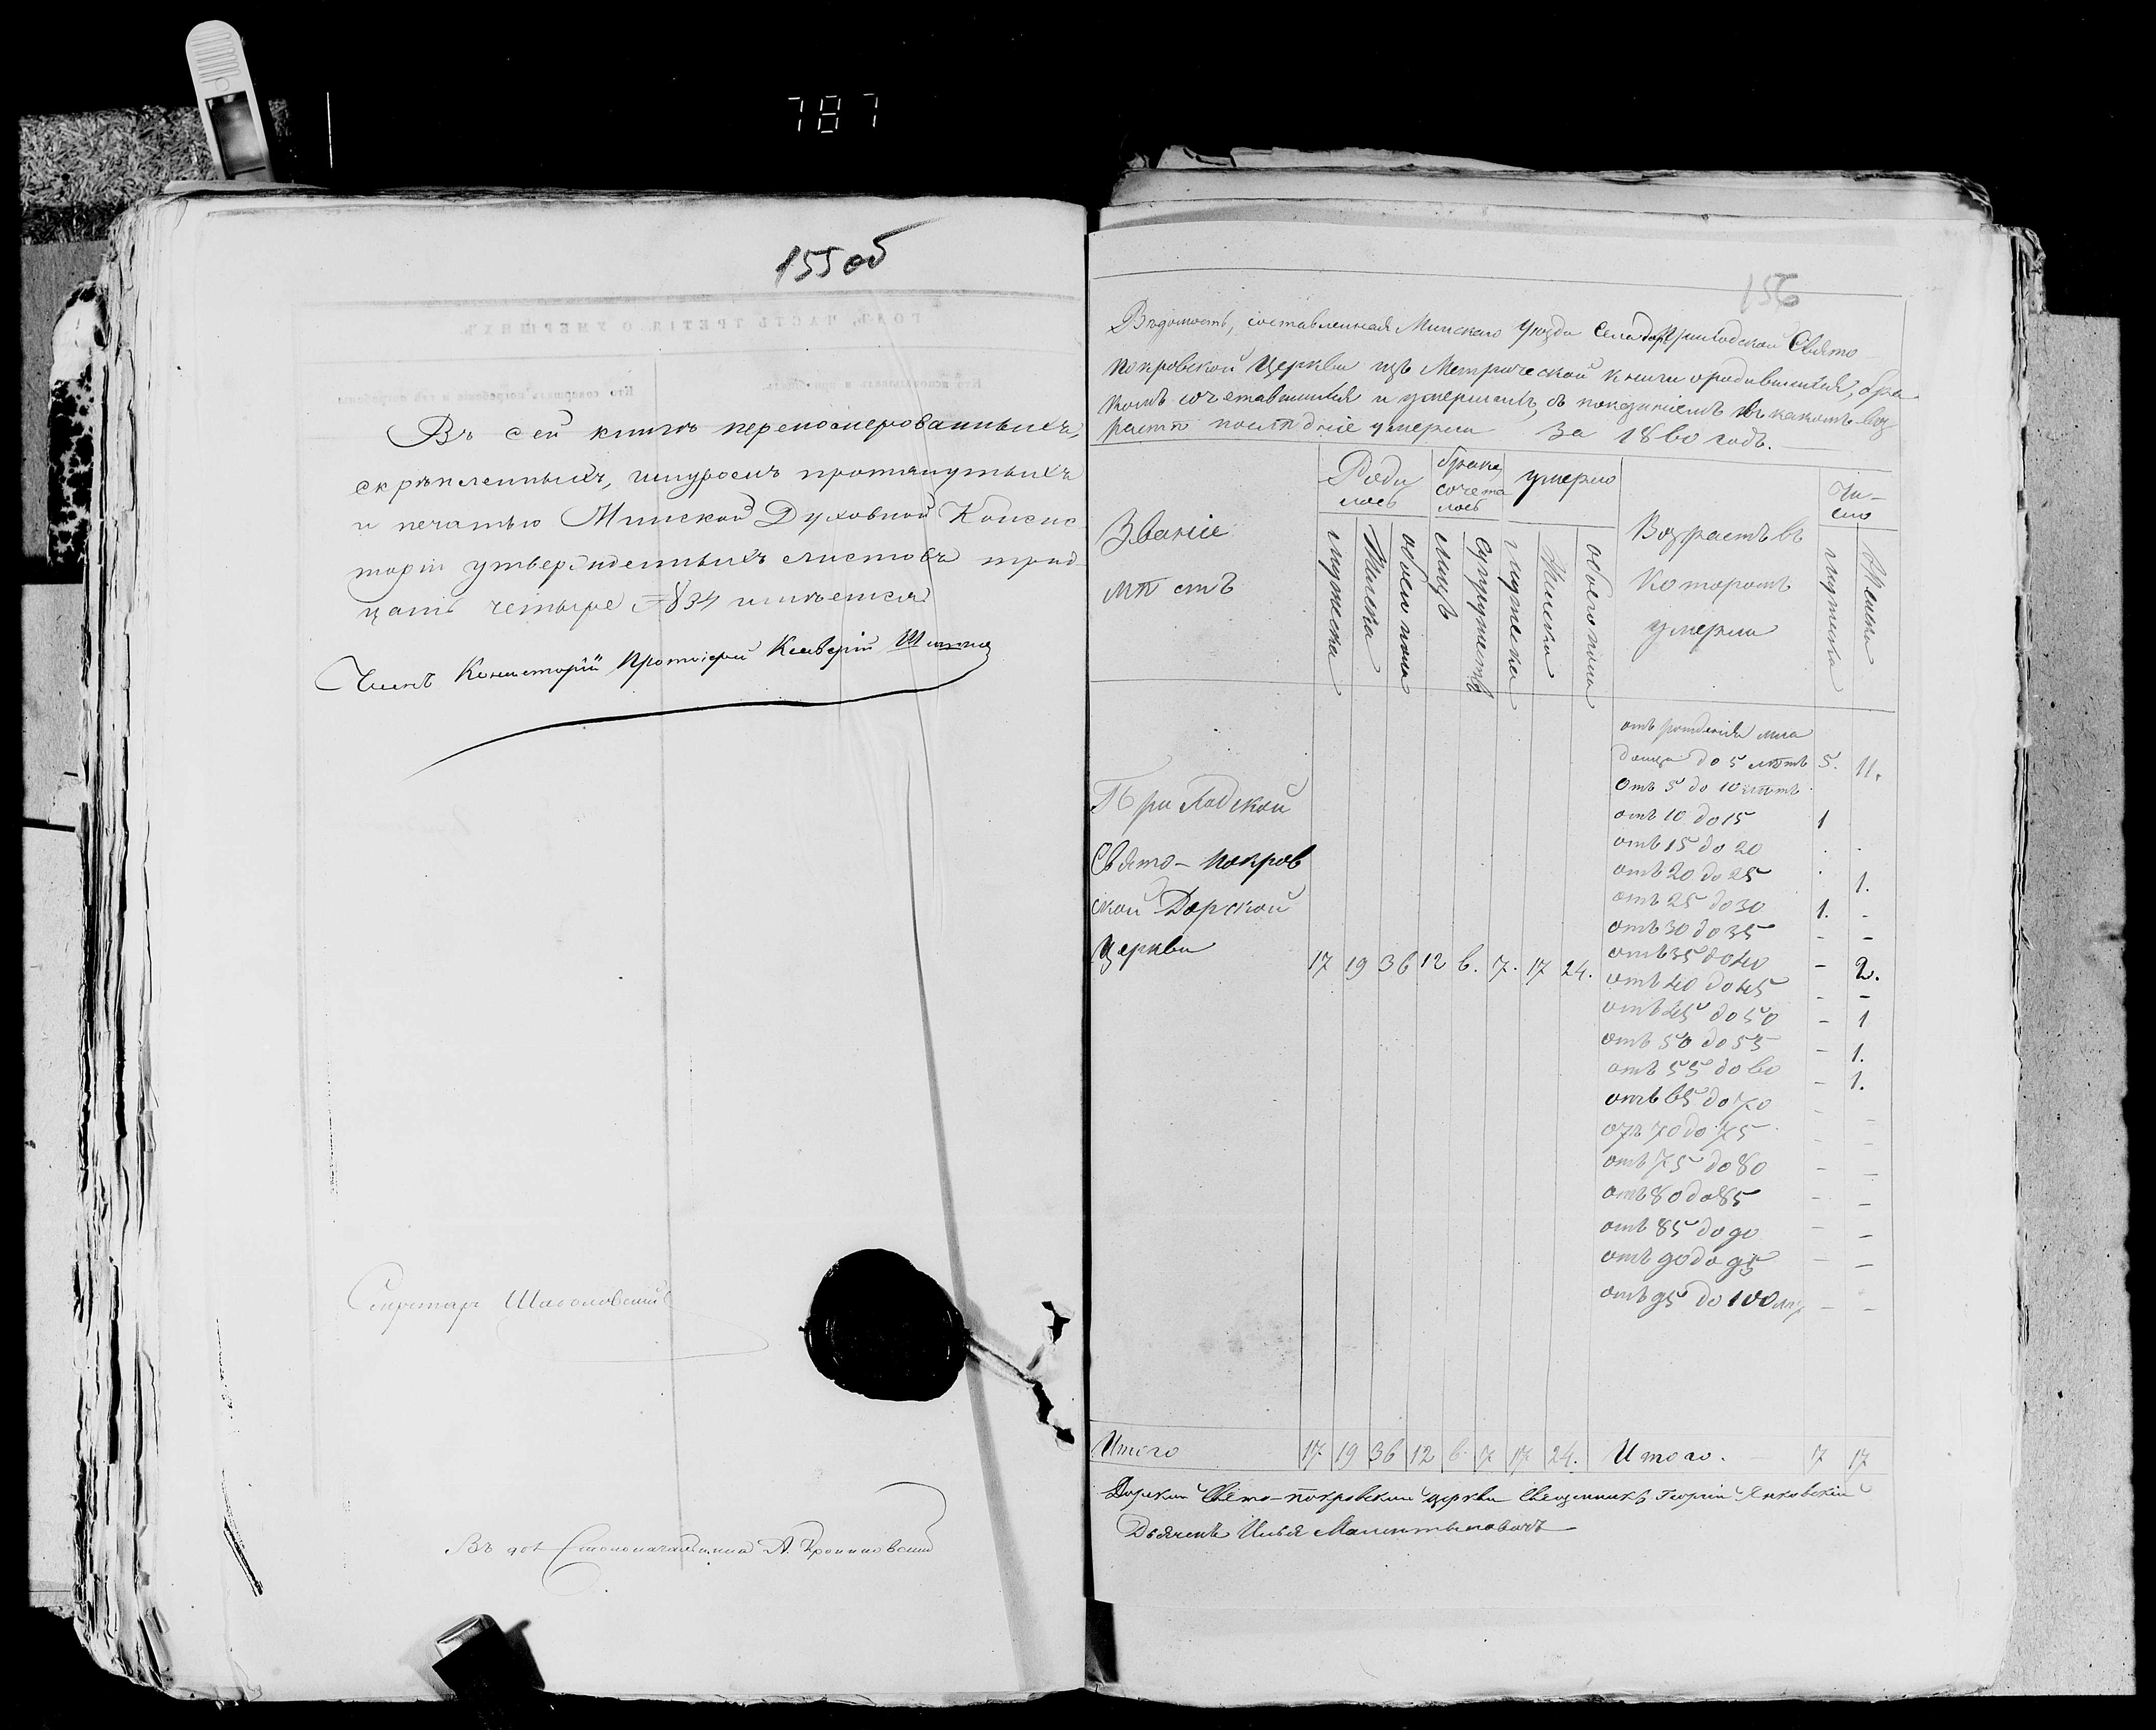 787
155 об
Въ сей книгѣ перенумерованныхъ,
скрѣпленныхъ, шнуромъ протянутыхъ
и печатью Минской Духовной Консис
торіи утвержденныхъ листовъ трид
цать четыре 34 имѣется
Членъ Консисторіи Протоіерей
Секретарь
Въ дол Столоначальника А.
156
Вѣдомость, составленная Минскаго Уѣзда Села Приходской Свято
покровской Церкви изъ Метрической книги о родившихся, бра
комъ сочетавшихся и умершихъ, съ показаніемъ въ какомъ воз
растѣ послѣдніе умерли за 1860 годъ.
Званіе
мѣстъ
Роди
лось
брака
сочета
лось
умерло
Возрастъ въ
которомъ
умерли
Чи-
сло
мужеска
женска
обоего пола
лицъ
супружествъ
мужеска
женска
обоего пола
мужеска
женска
отъ рожденія мла
денца до 5 лѣтъ 5. 11.
отъ 5 до 10 лѣтъ
отъ 10 до 15 1
отъ 15 до 20 . .
отъ 20 до 25 . 1.
отъ 25 до 30 1. -
отъ 30 до 35 - -
отъ 35 до 40 - 2.
отъ 40 до 45 - -
отъ 45 до 50 - 1
отъ 50 до 55 - 1.
отъ 55 до 60 - 1.
отъ 65 до 70 - -
отъ 70 до 75 - -
отъ 75 до 80 - -
отъ 80 до 85 - -
отъ 85 до 90 - -
отъ 90 до 95 - -
отъ 95 до 100 - -
Приходской
Свято-покров
ской Дорской
Церкви 17 19 36 12 6. 7. 17 24.
Итого 17 19 36 12 6. 7 17 24. Итого. 7 17
Дорской Свято-покровской церкви Священникъ Георгій Янковскій
Дьячекъ Илья